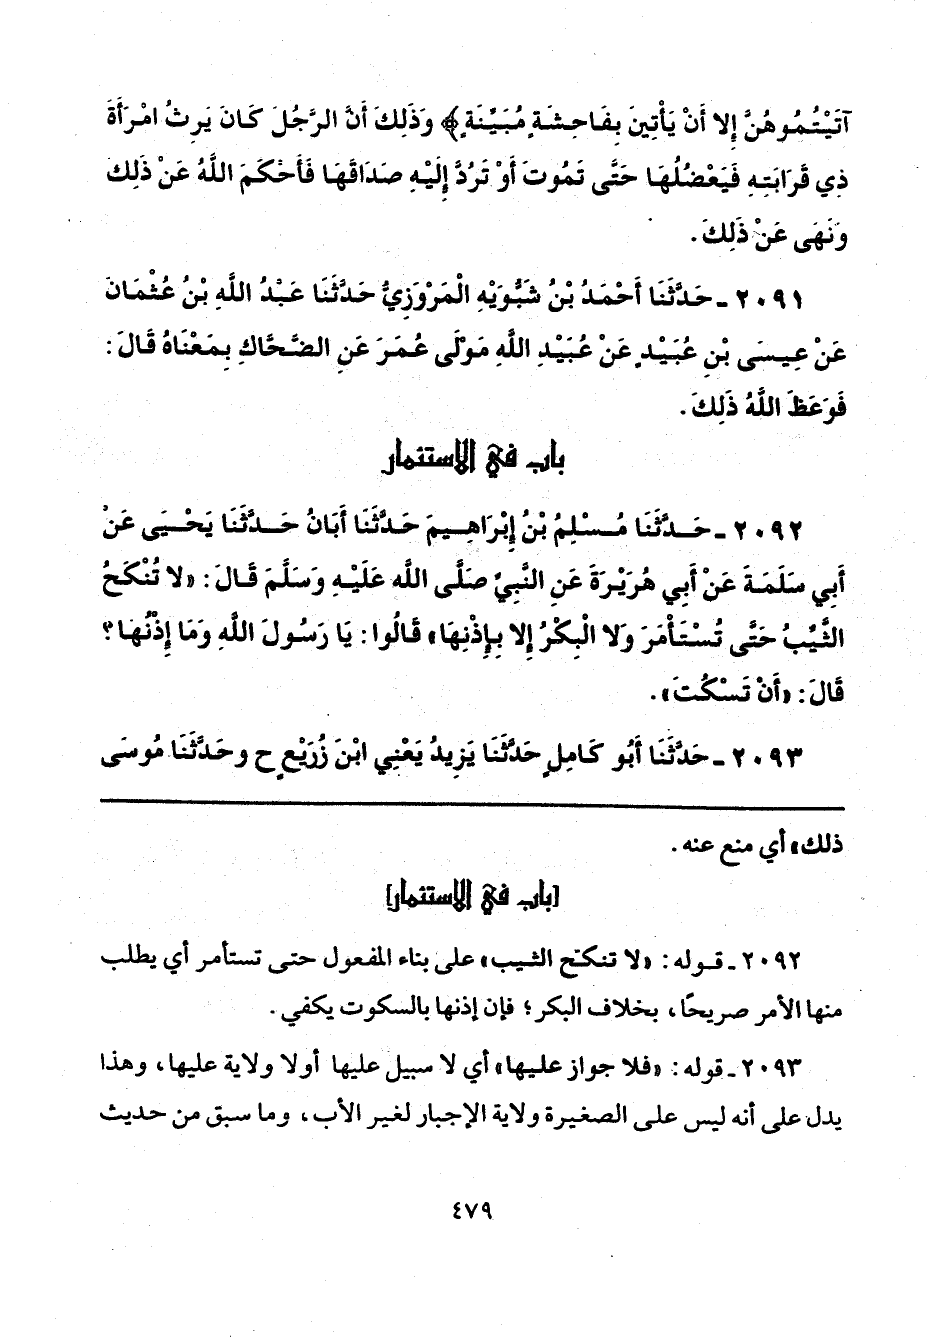 آتَيْتُمُوهُنَّ إِلا أَنْ يَأْتِينَ بِفَاحِشَةٍ مُبَيِّنَةٍ﴾ وَذَلِكَ أَنَّ الرَّجُلَ كَانَ يَرِثُ امْرَأَةَ
ذِي قَرَابَتِهِ فَيَعْضُلُهَا حَتَّى تَمُوتَ أَوْ تَرُدَّ إِلَيْهِ صَدَاقَهَا فَأَحْكَمَ اللَّهُ عَنْ ذَلِكَ
وَنَهَى عَنْ ذَلِكَ.
٢٠٩١ ـ حَدَّثَنَا أَحْمَدُ بْنُ شَبُّوَيْهِ الْمَرْوَزِيُّ حَدَّثَنَا عَبْدُ اللَّهِ بْنُ عُثْمَانَ
عَنْ عِيسَى بْنِ عُبَيْدٍ عَنْ عُبَيْدِ اللَّهِ مَوْلَى عُمَرَ عَنِ الضَّحَّاكِ بِمَعْنَاهُ قَالَ:
فَوَعَظَ اللَّهُ ذَلِكَ.
باب في الاستئمار
٢٠٩٢ ـ حَدَّثَنَا مُسْلِمُ بْنُ إِبْرَاهِيمَ حَدَّثَنَا أَبَانُ حَدَّثَنَا يَحْيَى عَنْ
أَبِي سَلَمَةَ عَنْ أَبِي هُرَيْرَةَ عَنِ النَّبِيِّ صَلَّى اللَّه عَلَيْهِ وَسَلَّمَ قَالَ: «لا تُنْكَحُ
الثَّيِّبُ حَتَّى تُسْتَأْمَرَ وَلا الْبِكْرُ إِلا بِإِذْنِهَا» قَالُوا: يَا رَسُولَ اللَّهِ وَمَا إِذْنُهَا؟
قَالَ: «أَنْ تَسْكُتَ».
٢٠٩٣ ـ حَدَّثَنَا أَبُو كَامِلٍ حَدَّثَنَا يَزِيدُ يَعْنِي ابْنَ زُرَيْعٍ ح وحَدَّثَنَا مُوسَى
ذلك» أي منع عنه.
[باب في الاستئمار]
٢٠٩٢ ـ قوله: «لا تنكح الثيب» على بناء المفعول حتى تستأمر أي يطلب
منها الأمر صريحًا، بخلاف البكر؛ فإن إذنها بالسكوت يكفي.
٢٠٩٣ ـ قوله: «فلا جواز عليها» أي لا سبيل عليها أولا ولاية عليها، وهذا
يدل على أنه ليس على الصغيرة ولاية الإجبار لغير الأب، وما سبق من حديث
٤٧٩